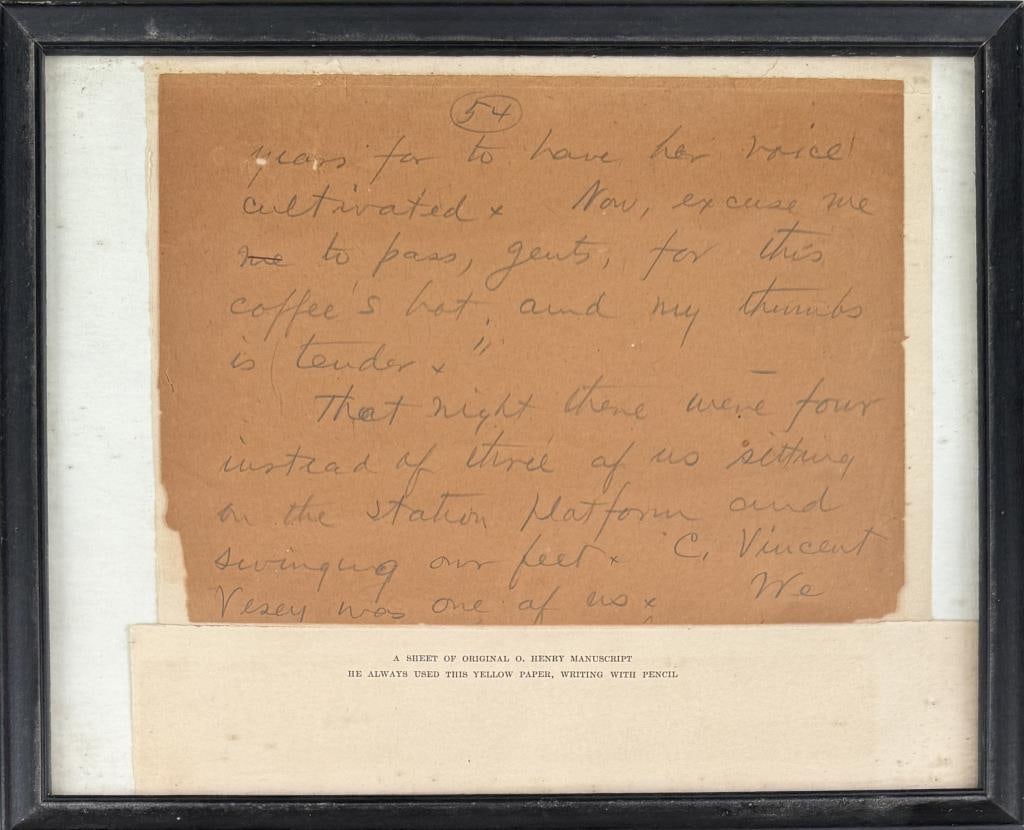 54
years for to have her voice
cultivated x Now, excuse me
me to pass, gents, for this
coffee's hot, and my thumbs
is tender x"
That night there were four
instead of three of us sitting
on the station platform and
swinging our feet x C. Vincent
Vesey was one of us x We
A SHEET OF ORIGINAL O. HENRY MANUSCRIPT
HE ALWAYS USED THIS YELLOW PAPER, WRITING WITH PENCIL